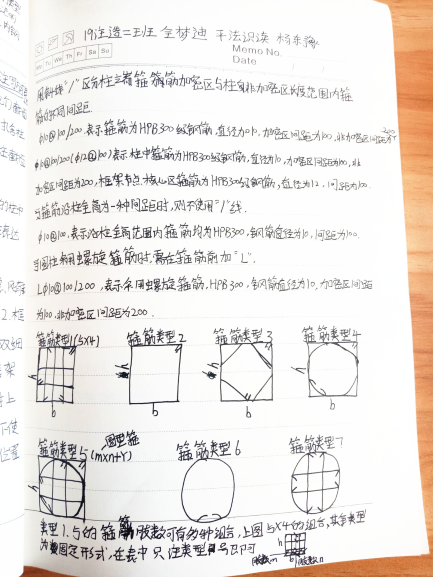 19注造二班 全梦迪 平法识读 杨东豫
Memo No.
Mo Tu We Th Fr Sa Su
Date
用斜线"/"区分柱端箍筋加密区与柱身非加密区长度范围内箍
筋的不同间距.
ϕ10@100/200,表示箍筋为HPB300级钢筋,直径为10,加密区间距为100,非加密区间距为200
ϕ10@100/200(ϕ12@100)表示柱中箍筋为HPB300级钢筋,直径为10,加密区间距为100,非
加密区间距为200,框架节点核心区箍筋为HPB300级钢筋,直径为12,间距为100.
当箍筋沿柱全高为一种间距时,则不使用"/"线.
ϕ10@100,表示沿柱全高范围内箍筋均为HPB300,钢筋直径为10,间距为100.
当圆柱采用螺旋箍筋时,需在箍筋前加"L".
Lϕ10@100/200,表示采用螺旋箍筋,HPB300,钢筋直径为10,加密区间距
为100,非加密区间距为200.
箍筋类型1(5X4) 箍筋类型2 箍筋类型3 箍筋类型4
b b b
圆型箍
箍筋类型5(mxn+Y) 箍筋类型6 箍筋类型7
类型1.5的箍筋肢数可有多种组合,上图5X4的组合,其余类型
为固定形式,在表中只注类型号即可
h
肢数m b 肢数n